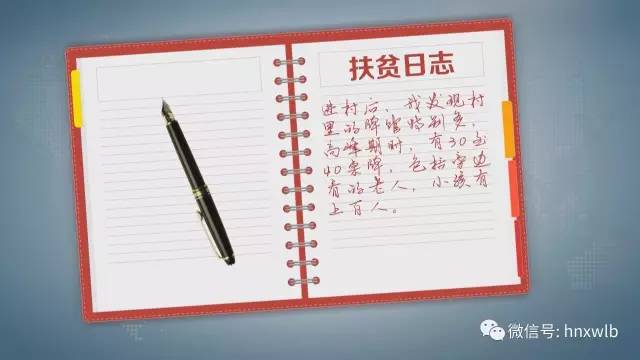 扶贫日志
进村后，我发现村
里的牌馆特别多，
高峰期时，有30至
40桌牌，包括旁边
看的老人，小孩有
上百人。
微信号: hnxwlb